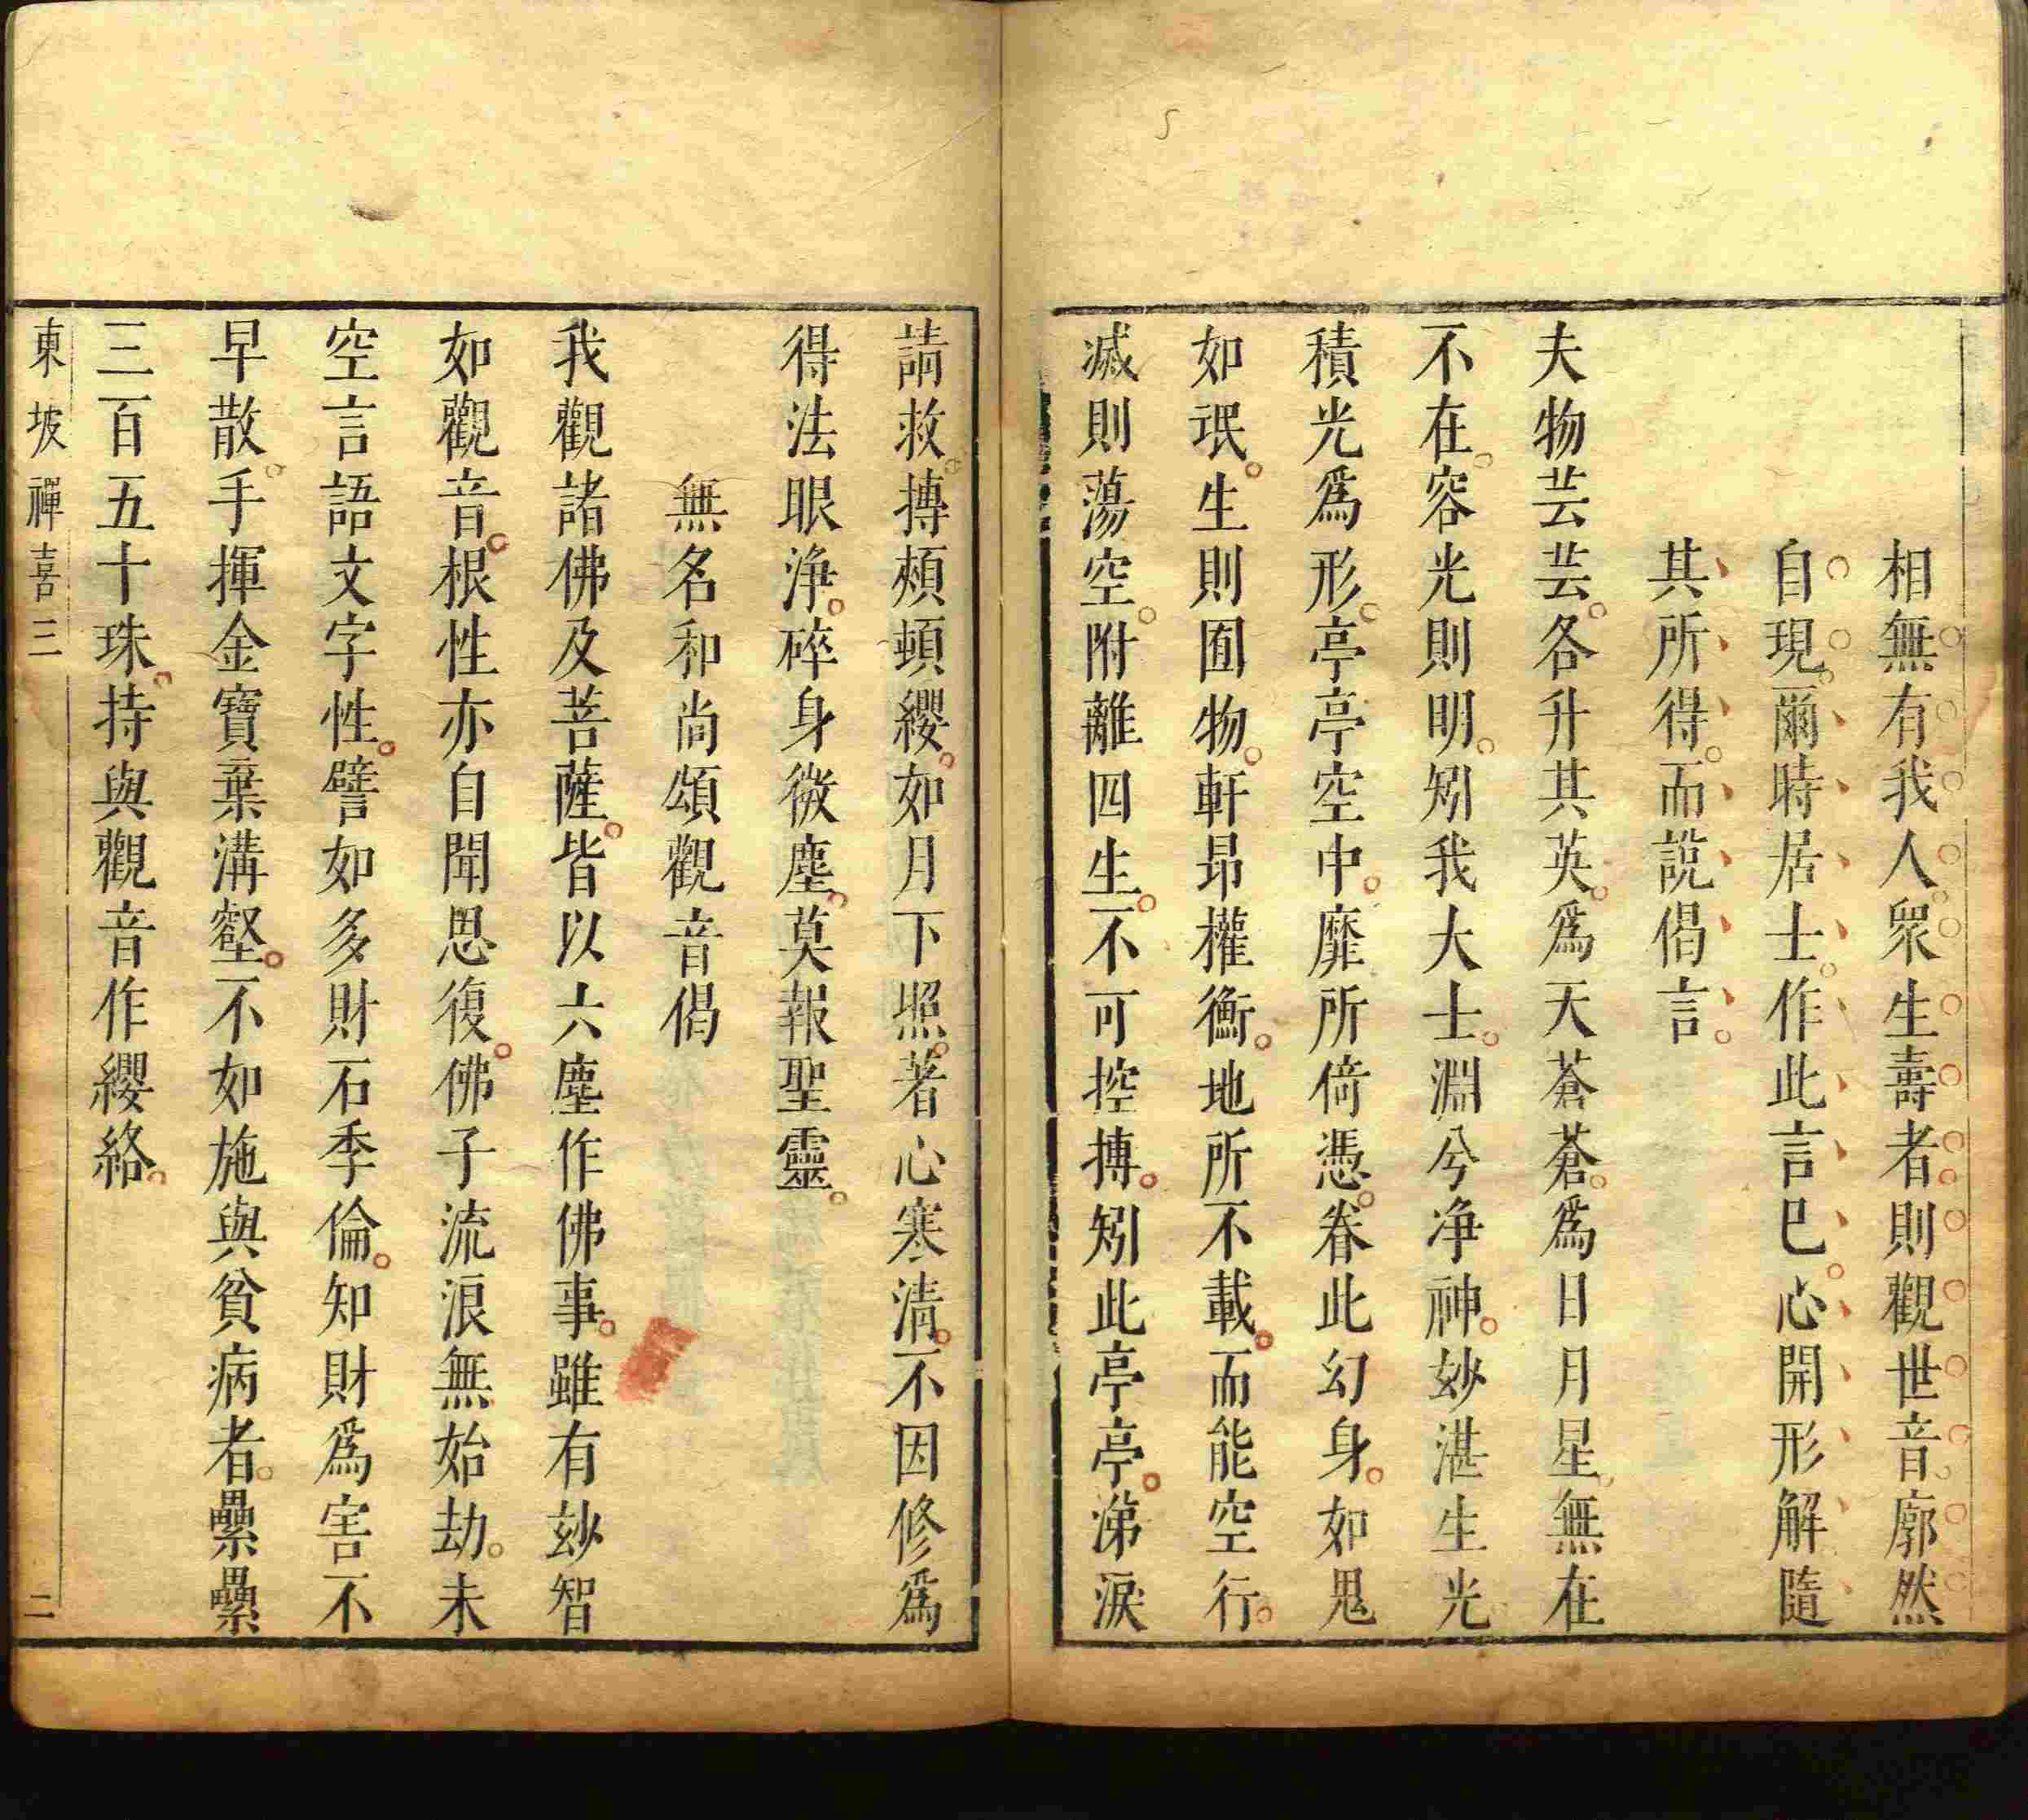 相無有我人眾生壽者則觀世音廓然
自現爾時居士作此言已心開形解隨
其所得而說偈言
夫物芸芸各升其英為天蒼蒼為日月星無在
不在容光則明矧我大士淵兮净神妙湛生光
積光為形亭亭空中靡所倚憑眷此幻身如鬼
如氓生則囿物軒昻權衡地所不載而能空行
滅則蕩空附離四生不可控摶矧此亭亭涕淚
請救摶頰頓纓如月下照著心寒清不因修為
得法眼淨碎身微塵莫報聖靈
無名和尚頌觀音偈
我觀諸佛及菩薩皆以六塵作佛事雖有妙智
如觀音根性亦自聞思復佛子流浪無始劫未
空言語文字性譬如多財石季倫知財為害不
早散手揮金寶棄溝壑不如施與貧病者纍纍
三百五十珠持與觀音作纓絡
東坡禪喜三
二